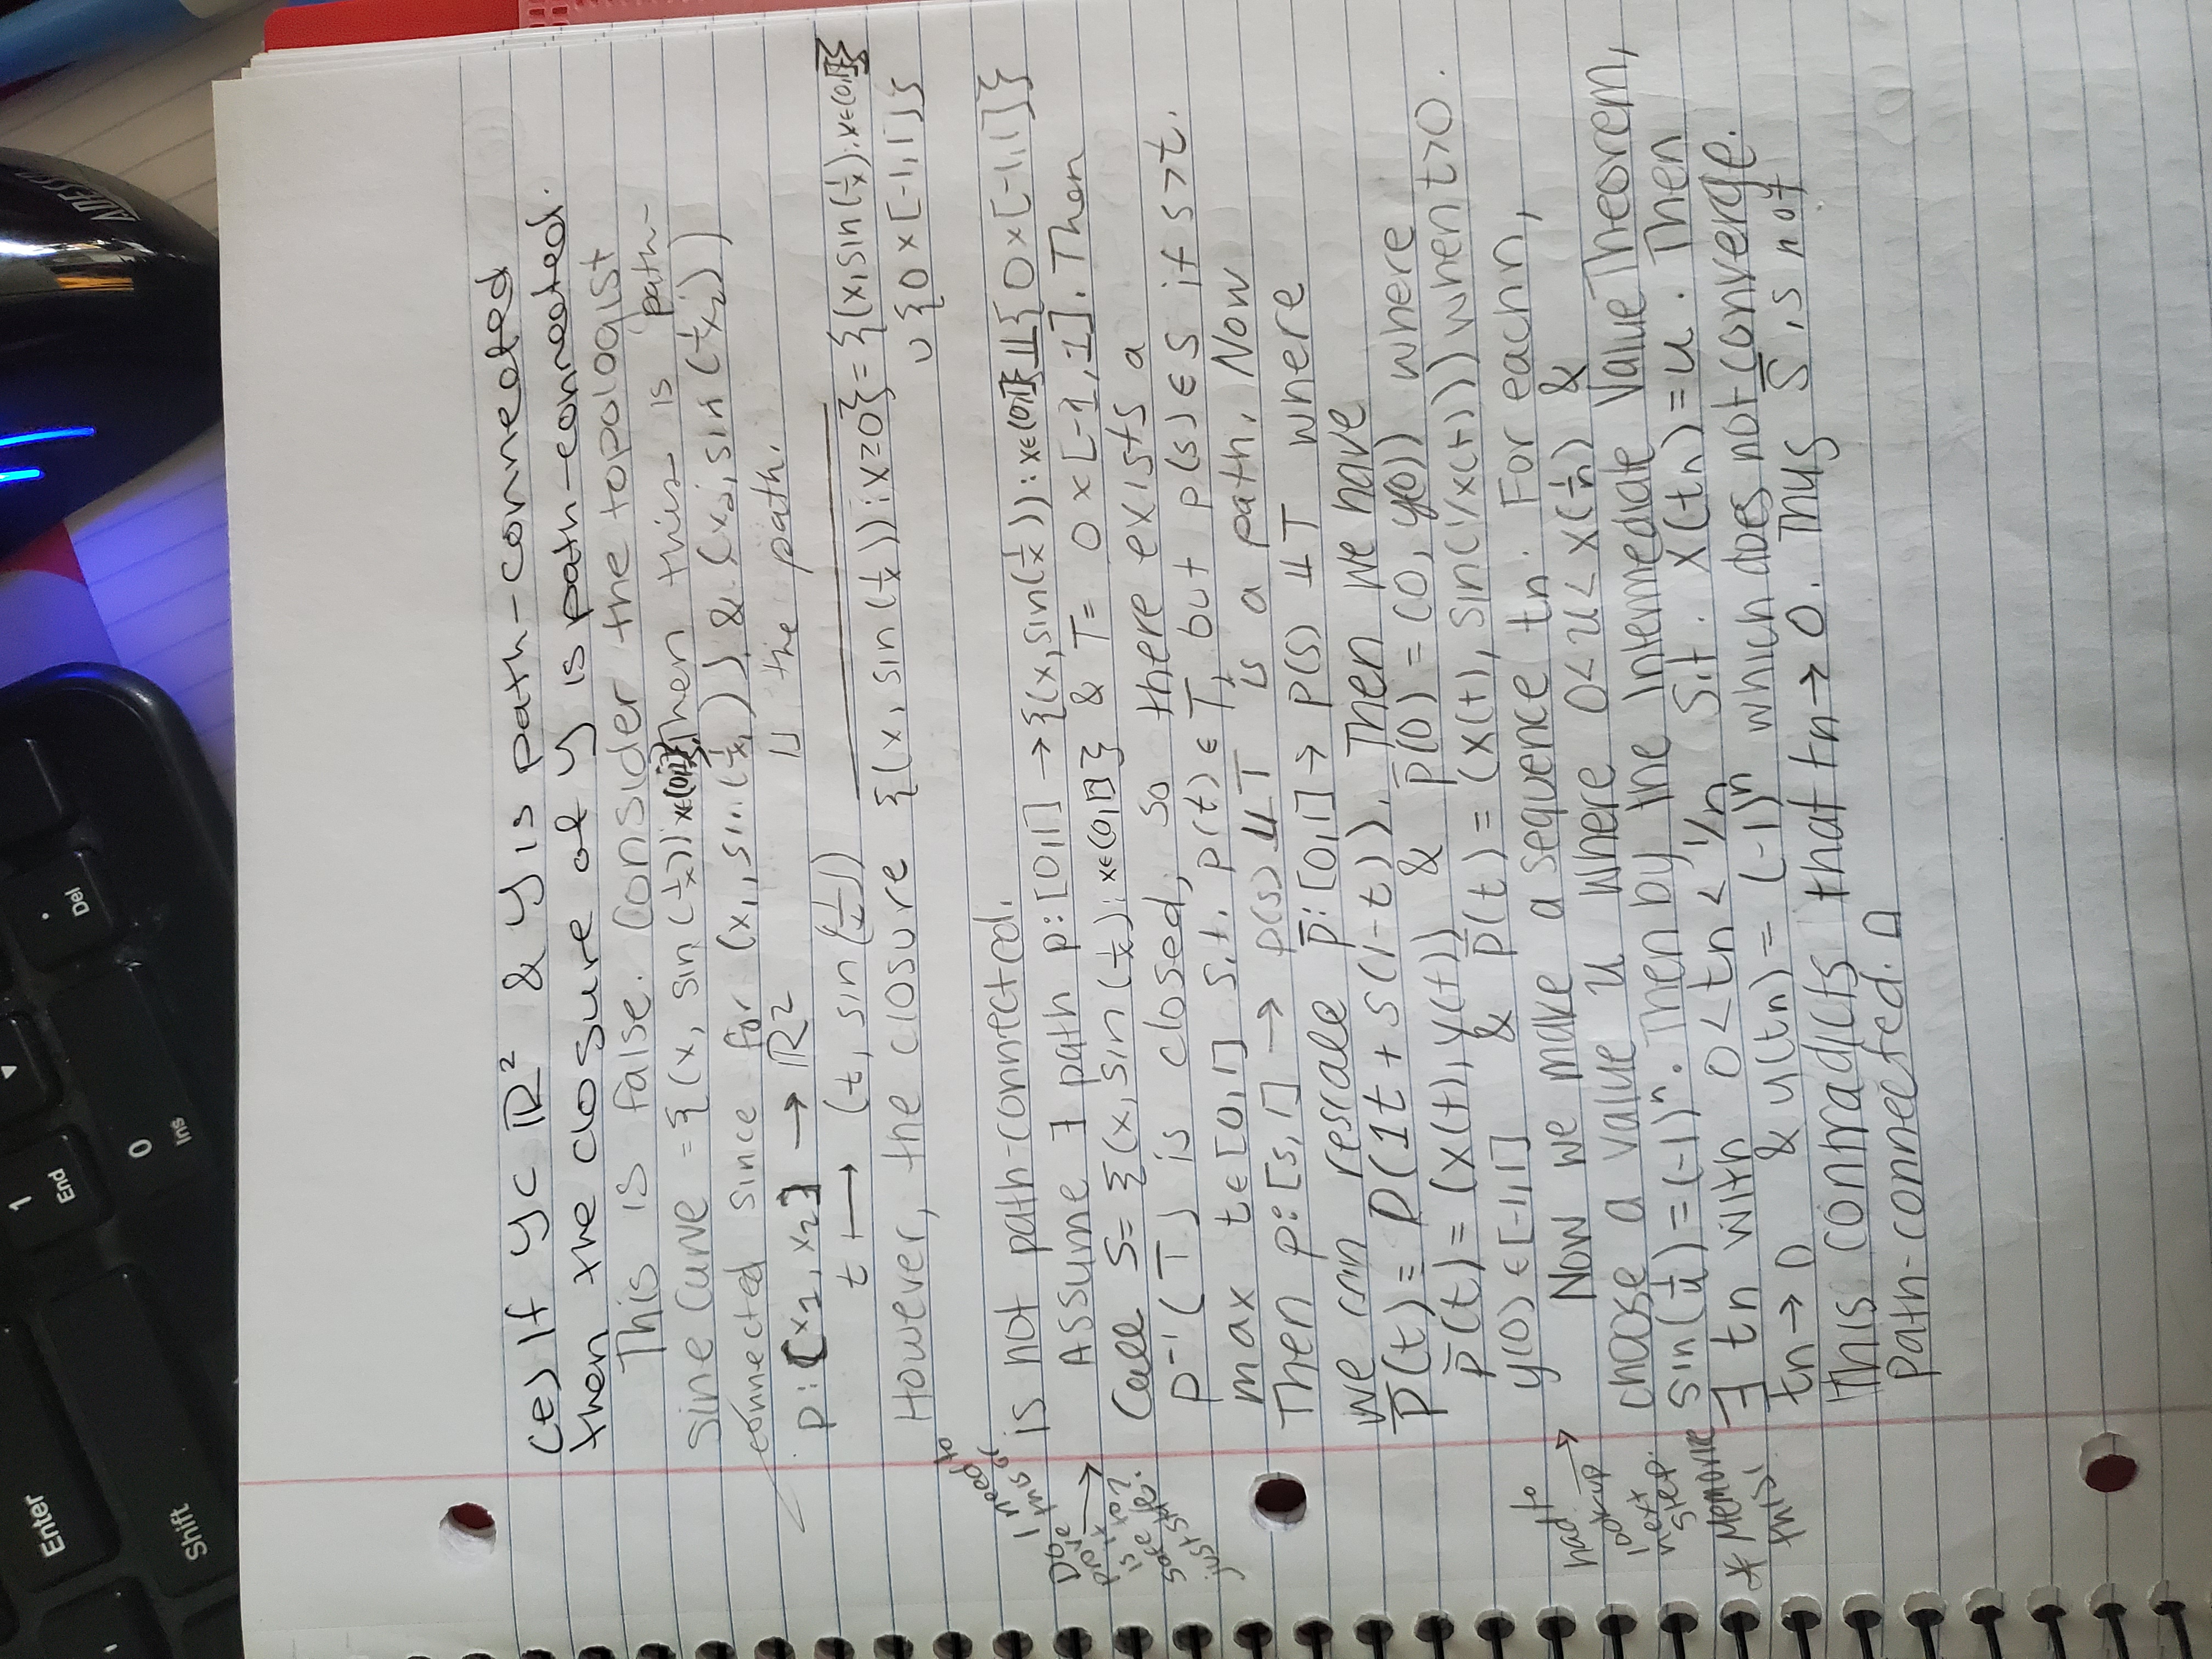 Enter
1
End
.
Del
0
Ins
Shift
ADESS
(e) If Y ⊂ ℝ² & Y is path-connected
then the closure of Y is path-connected.
This is false. Consider the topologist
sine curve = {(x, sin(1/x)) : x∈(0,1]}. Then this is path-
connected since for (x₁, sin(1/x₁)) & (x₂, sin(1/x₂))
p: [x₁, x₂] → ℝ² is the path.
t ↦ (t, sin(1/t))
However, the closure {(x, sin(1/x)) : x≥0} = {(x, sin(1/x) : x∈(0,1]}
∪ {0 × [-1,1]}
is not path-connected.
Do I need to
prove this or
is it
safe to
just state?
Assume ∃ path p: [0,1] → {(x, sin(1/x)) : x∈(0,1]} ⊔ {0 × [-1,1]}
Call S = {(x, sin(1/x) : x∈(0,1]} & T = 0 × [-1,1]. Then
p⁻¹(T) is closed, so there exists a
max t∈[0,1] s.t. p(t) ∈ T, but p(s) ∈ S if s>t.
Then p: [s,1] → p(s) ⊔ T is a path. Now
we can rescale p̄: [0,1] → p(s) ⊔ T where
p̄(t) = p(1t + s(1-t)). Then we have
p̄(t) = (x(t), y(t)) & p̄(0) = (0, y(0)) where
y(0) ∈ [-1,1] & p̄(t) = (x(t), sin(1/x(t))) when t>0.
had to
look up
next
step.
* Memorize
this!
Now we make a sequence tₙ. For each n,
choose a value u where 0<u<x(1/n) &
sin(1/u) = (-1)ⁿ. Then by the Intermediate Value Theorem,
∃ tₙ with 0<tₙ<1/n s.t. x(tₙ)=u. Then
tₙ → 0 & y(tₙ) = (-1)ⁿ which does not converge.
This contradicts that tₙ → 0. Thus S̄ is not
path-connected. □